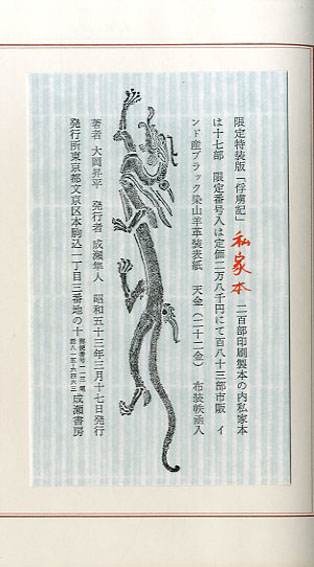 限定特装版「俘虜記」 私家本 二百部印刷製本の内私家本
は十七部 限定番号入は定価二万八千円にて百八十三部市販 イ
ンド産ブラック染山羊革装表紙 天金(二十二金) 布装帙函入
著者 大岡昇平 発行者 成瀬隼人 昭和五十三年二月十七日発行
発行所東京都文京区本駒込一丁目三番地の十 郵便番号一一三 成瀬書房